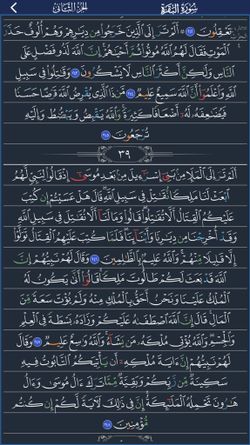 سُورَةُ البَقَرَةِ الجُزْءُ الثَّانِي
تَعْقِلُونَ ٢٤٢ ۞ أَلَمْ تَرَ إِلَى ٱلَّذِينَ خَرَجُوا۟ مِن دِيَٰرِهِمْ وَهُمْ أُلُوفٌ حَذَرَ
ٱلْمَوْتِ فَقَالَ لَهُمُ ٱللَّهُ مُوتُوا۟ ثُمَّ أَحْيَٰهُمْ إِنَّ ٱللَّهَ لَذُو فَضْلٍ عَلَى
ٱلنَّاسِ وَلَٰكِنَّ أَكْثَرَ ٱلنَّاسِ لَا يَشْكُرُونَ ٢٤٣ وَقَٰتِلُوا۟ فِى سَبِيلِ
ٱللَّهِ وَٱعْلَمُوٓا۟ أَنَّ ٱللَّهَ سَمِيعٌ عَلِيمٌ ٢٤٤ مَّن ذَا ٱلَّذِى يُقْرِضُ ٱللَّهَ قَرْضًا حَسَنًا
فَيُضَٰعِفَهُۥ لَهُۥٓ أَضْعَافًا كَثِيرَةً وَٱللَّهُ يَقْبِضُ وَيَبْصُۜطُ وَإِلَيْهِ
تُرْجَعُونَ ٢٤٥
٣٩
أَلَمْ تَرَ إِلَى ٱلْمَلَإِ مِنۢ بَنِىٓ إِسْرَٰٓءِيلَ مِنۢ بَعْدِ مُوسَىٰٓ إِذْ قَالُوا۟ لِنَبِىٍّ لَّهُمُ
ٱبْعَثْ لَنَا مَلِكًا نُّقَٰتِلْ فِى سَبِيلِ ٱللَّهِ قَالَ هَلْ عَسَيْتُمْ إِن كُتِبَ
عَلَيْكُمُ ٱلْقِتَالُ أَلَّا تُقَٰتِلُوا۟ قَالُوا۟ وَمَا لَنَآ أَلَّا نُقَٰتِلَ فِى سَبِيلِ ٱللَّهِ
وَقَدْ أُخْرِجْنَا مِن دِيَٰرِنَا وَأَبْنَآئِنَا فَلَمَّا كُتِبَ عَلَيْهِمُ ٱلْقِتَالُ تَوَلَّوْا۟
إِلَّا قَلِيلًا مِّنْهُمْ وَٱللَّهُ عَلِيمٌۢ بِٱلظَّٰلِمِينَ ٢٤٦ وَقَالَ لَهُمْ نَبِيُّهُمْ إِنَّ
ٱللَّهَ قَدْ بَعَثَ لَكُمْ طَالُوتَ مَلِكًا قَالُوٓا۟ أَنَّىٰ يَكُونُ لَهُ
ٱلْمُلْكُ عَلَيْنَا وَنَحْنُ أَحَقُّ بِٱلْمُلْكِ مِنْهُ وَلَمْ يُؤْتَ سَعَةً مِّنَ
ٱلْمَالِ قَالَ إِنَّ ٱللَّهَ ٱصْطَفَىٰهُ عَلَيْكُمْ وَزَادَهُۥ بَسْطَةً فِى ٱلْعِلْمِ
وَٱلْجِسْمِ وَٱللَّهُ يُؤْتِى مُلْكَهُۥ مَن يَشَآءُ وَٱللَّهُ وَٰسِعٌ عَلِيمٌ ٢٤٧ وَقَالَ
لَهُمْ نَبِيُّهُمْ إِنَّ ءَايَةَ مُلْكِهِۦٓ أَن يَأْتِيَكُمُ ٱلتَّابُوتُ فِيهِ
سَكِينَةٌ مِّن رَّبِّكُمْ وَبَقِيَّةٌ مِّمَّا تَرَكَ ءَالُ مُوسَىٰ وَءَالُ
هَٰرُونَ تَحْمِلُهُ ٱلْمَلَٰٓئِكَةُ إِنَّ فِى ذَٰلِكَ لَءَايَةً لَّكُمْ إِن كُنتُم
مُّؤْمِنِينَ ٢٤٨